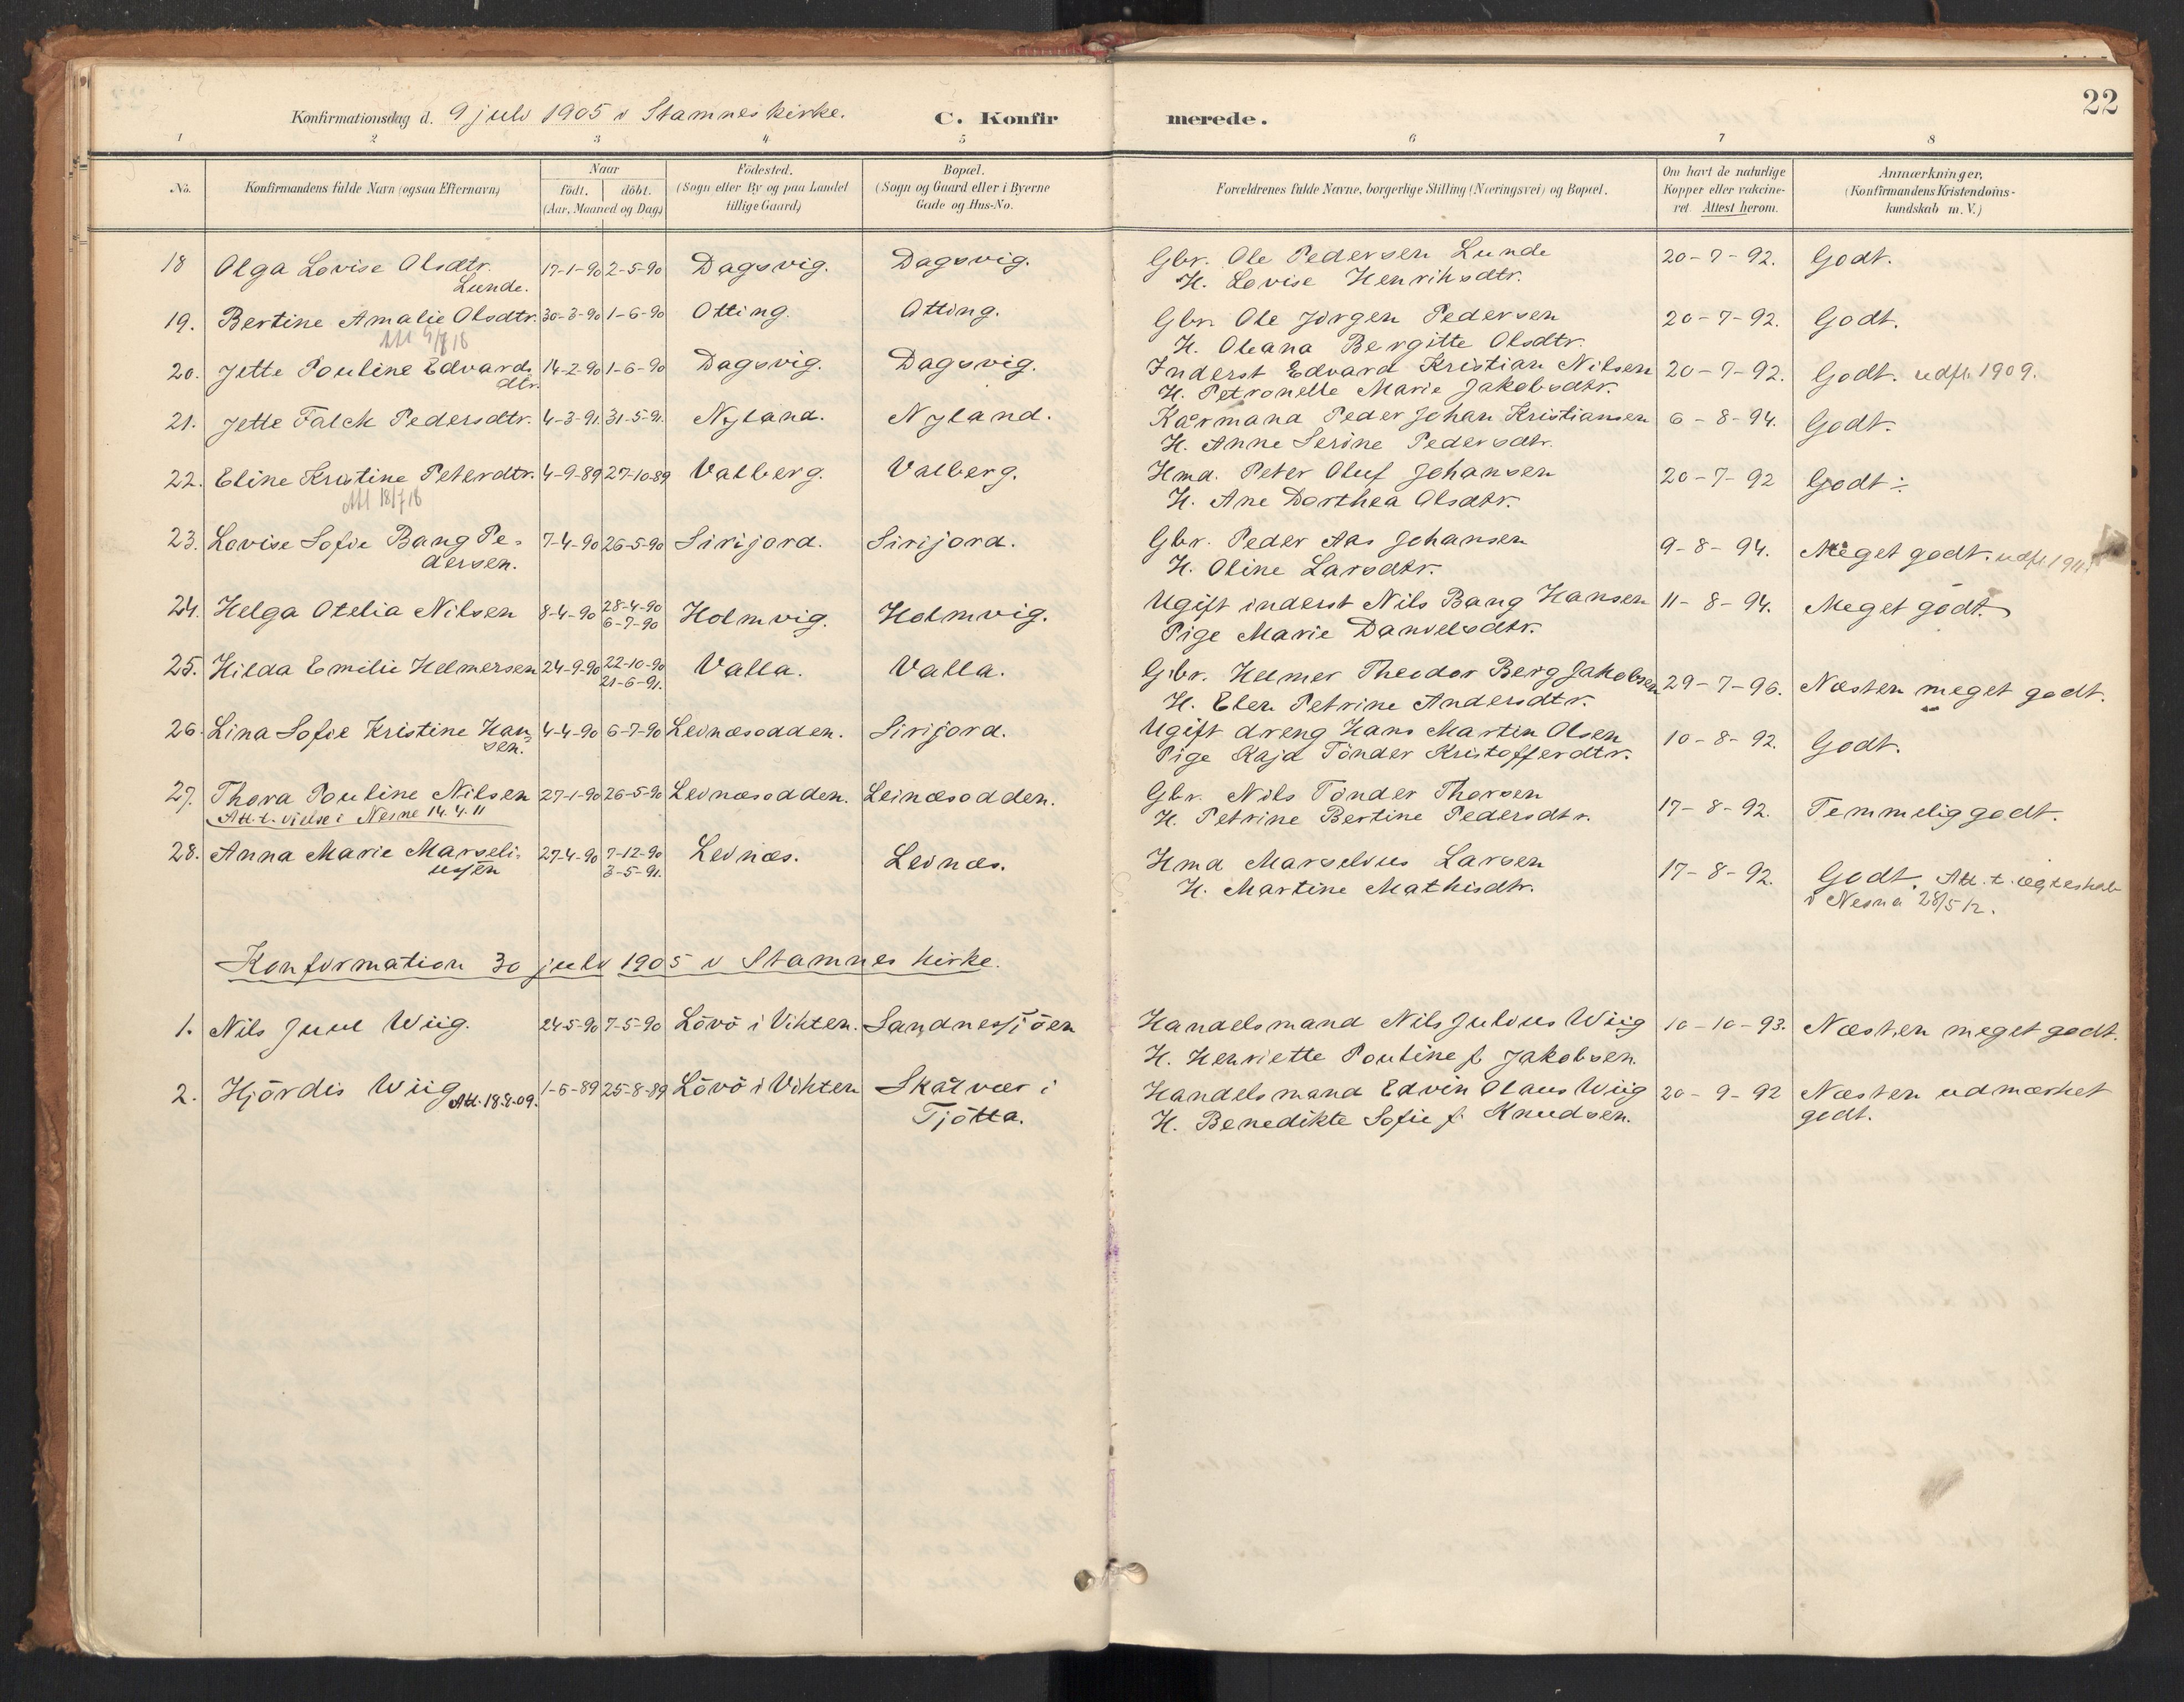 Konfirmationsdag d. 9 juli 1905 i Stamnes kirke. C. Konfirmerede. 22
1 2 3 4 5 6 7 8
No. Konfirmandens fulde Navn (ogsaa Efternavn) Naar født, døbt. (Aar, Maaned og Dag) Födested. (Sogn eller By og paa Landet tillige Gaard) Bopæl. (Sogn og Gaard eller i Byerne Gade og Hus-No. Forældrenes fulde Navne, borgerlige Stilling (Næringsvei) og Bopæl. Om havt de naturlige Kopper eller vakcineret. Attest herom. Anmærkninger, (Konfirmandens Kristendomskundskab m. V.)
18 Olga Lovise Olsdtr. 17-1-90 2-5-90 Dagsvig. Dagsvig. Gbr. Ole Pedersen Lunde 20-7-92. Godt.
Lunde. H. Lovise Henriksdtr.
19. Bertine Amalie Olsdtr. 30-3-90 1-6-90 Otting. Otting. Gbr. Ole Jörgen Pedersen 20-7-92. Godt.
H. Oleana Bergitte Olsdtr.
20. Jette Pouline Edvards 14-2-90 1-6-90 Dagsvig. Dagsvig. Inderst Edvard Kristian Nilsen 20-7-92. Godt. udfl. 1909.
dtr. H. Petronelle Marie Jakobsdtr.
21. Jette Falch Pedersdtr. 4-3-91. 31-5-91. Nyland. Nyland. Kårmand Peder Johan Kristiansen 6-8-94. Godt.
H. Anne Serine Pedersdtr.
22. Eline Kristine Peterdtr. 4-9-89 27-10-89 Valberg. Valberg. Hmd. Peter Oluf Johansen 20-7-92 Godt ÷
Att 18/7 16 H. Ane Dorthea Olsdtr.
23. Lovise Sofie Bang Pe- 7-4-90 26-5-90 Sirijord. Sirijord. Gbr. Peder Aas Johansen 9-8-94. Meget godt. udfl.
dersen. H. Oline Larsdtr.
24. Helga Otelia Nilsen 8-4-90 28-4-90 Holmvig. Holmvig. Ugift inderst Nils Bang Hansen 11-8-94. Meget godt.
6-7-90 Pige Marie Danielsdtr.
25. Hilda Emilie Helmersen 24-9-90 22-10-90 Valla. Valla. Gbr. Helmer Theodor Berg Jakobsen 29-7-96. Næsten meget godt.
21-6-91. H. Elen Petrine Andersdtr.
26. Lina Sofie Kristine Han- 4-4-90 6-7-90 Leinæsodden. Sirijord. Ugift dreng Hans Martin Olsen 10-8-92. Godt.
sen. Pige Kaja Tönder Kristofferdtr.
27. Thora Pouline Nilsen 27-1-90 26-5-90 Leinæsodden. Leinæsodden. Gbr. Nils Tönder Thorsen 17-8-92. Temmelig godt.
Att. t. vielse i Nesne 14.4.11 H. Petrine Bertine Pedersdtr.
28. Anna Marie Marseli- 27-4-90 7-12-90 Leinæs. Leinæs. Hmd Marselius Larsen 17-8-92. Godt. Att. t. ægteskab
ussen 3-5-91. H. Martine Mathisdtr. i Nesna 28/5 12.
Konfirmation 30 juli 1905 i Stamnes kirke.
1. Nils Juul Wiig. 24-5-90 7-5-90 Lövö i Vikten. Sandnessjöen Handelsmand Nils Julius Wiig 10-10-93. Næsten meget godt.
H. Henriette Pouline f. Jakobsen.
2. Hjördis Wiig Att. 18.8.09. 1-6-89 25-8-89 Lövö i Vikten Skålvær i Handelsmand Edvin Olaus Wiig 20-9-92 Næsten udmærket
Tjötta. H. Benedikte Sofie f. Knudsen. godt.